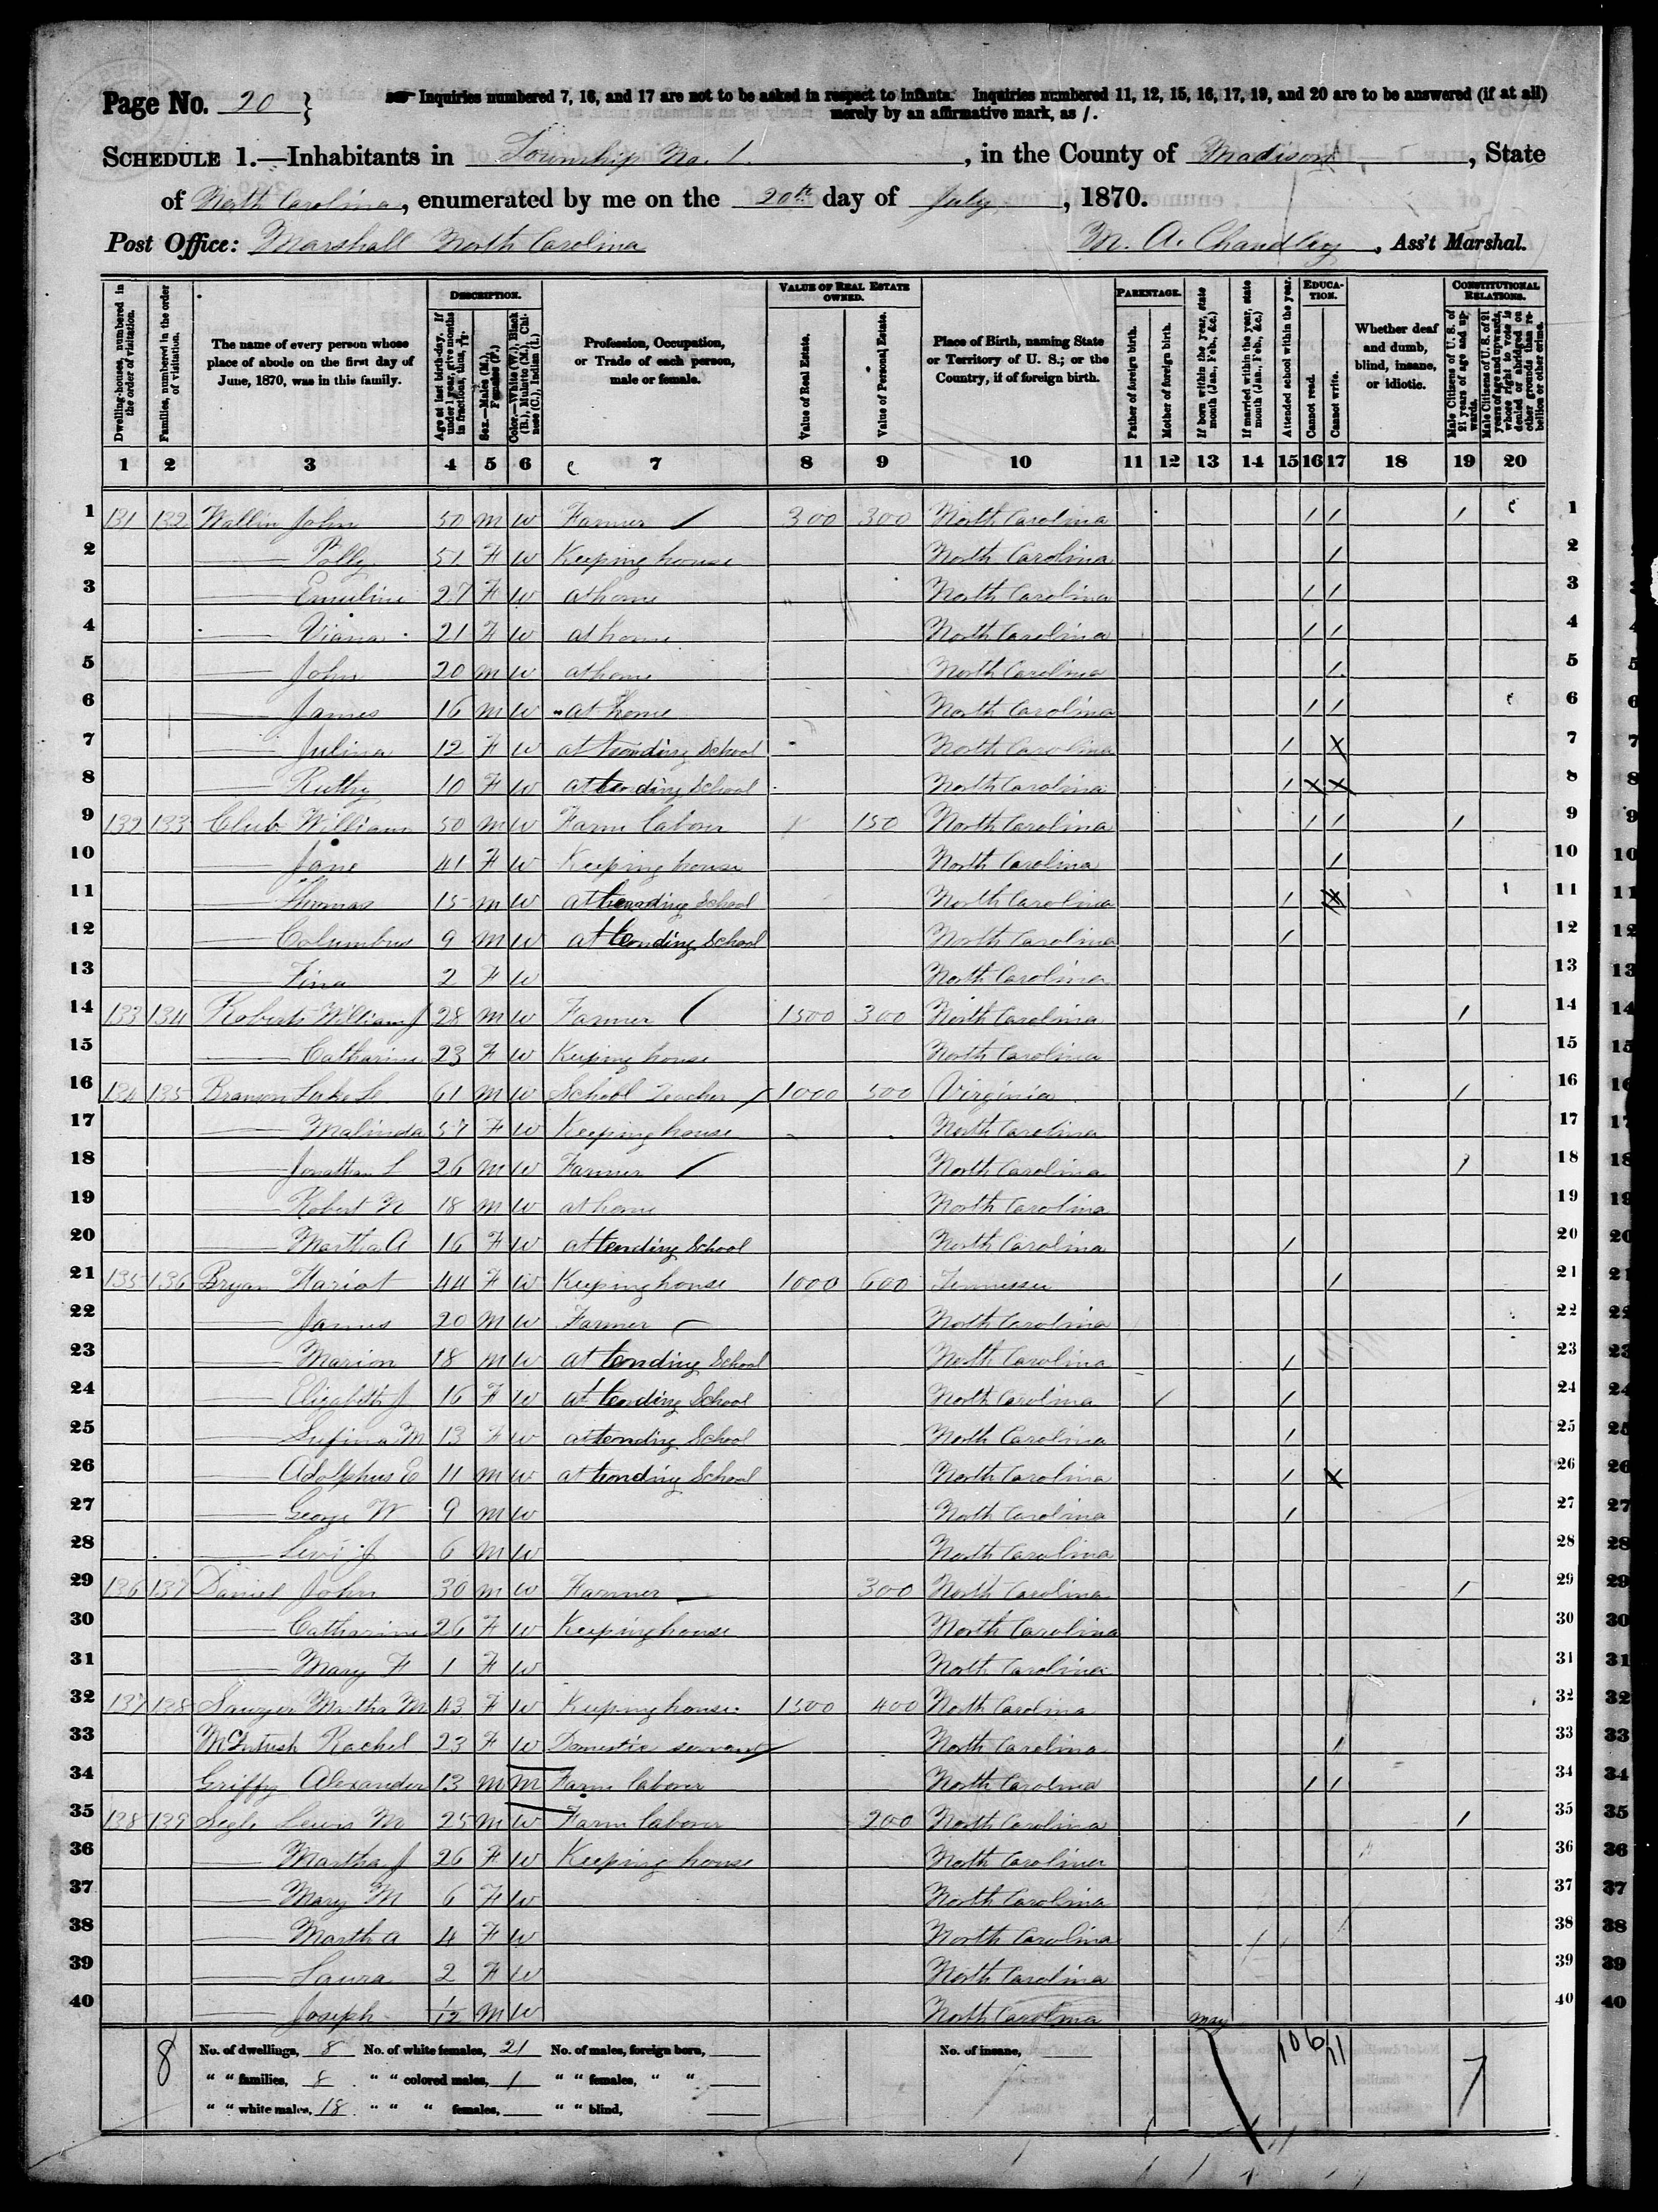 Page No. 20 } Inquiries numbered 7, 16, and 17 are not to be asked in respect to infants. Inquiries numbered 11, 12, 15, 16, 17, 19, and 20 are to be answered (if at all)
merely by an affirmative mark, as /.
SCHEDULE 1.—Inhabitants in Township No. 1., in the County of Madison, State
of North Carolina, enumerated by me on the 20th day of July, 1870.
Post Office: Marshall North Carolina M. A. Chandley, Ass't Marshal.
Dwelling-houses, numbered in the order of visitation.
Families, numbered in the order of visitation.
The name of every person whose place of abode on the first day of June, 1870, was in this family.
DESCRIPTION.
Age at last birth-day. If under 1 year, give months in fractions, thus, 3/12.
Sex.—Males (M.), Females (F.)
Color.—White (W.), Black (B.), Mulatto (M.), Chinese (C.), Indian (I.)
Profession, Occupation, or Trade of each person, male or female.
VALUE OF REAL ESTATE OWNED.
Value of Real Estate.
Value of Personal Estate.
Place of Birth, naming State or Territory of U. S.; or the Country, if of foreign birth.
PARENTAGE.
Father of foreign birth.
Mother of foreign birth.
If born within the year, state month (Jan., Feb., &c.)
If married within the year, state month (Jan., Feb., &c.)
Attended school within the year.
EDUCATION.
Cannot read.
Cannot write.
Whether deaf and dumb, blind, insane, or idiotic.
CONSTITUTIONAL RELATIONS.
Male Citizens of U. S. of 21 years of age and upwards.
Male Citizens of U. S. of 21 years of age and upwards, whose right to vote is denied or abridged on other grounds than rebellion or other crime.
1 2 3 4 5 6 7 8 9 10 11 12 13 14 15 16 17 18 19 20
1 131 132 Wallin John 50 m W Farmer / 300 300 North Carolina / / / 1
2 Polly 51 F W Keeping house North Carolina / 2
3 Emeline 27 F W at home North Carolina / / 3
4 Viana 21 F W at home North Carolina / / 4
5 John 20 m W at home North Carolina / 5
6 James 16 m W at home North Carolina / / 6
7 Julina 12 F W attending School North Carolina / X 7
8 Ruthy 10 F W attending School North Carolina / X X 8
9 132 133 Club William 50 m W Farm labour 150 North Carolina / / / 9
10 Jane 41 F W Keeping house North Carolina / 10
11 Thomas 15 m W attending School North Carolina / X 11
12 Columbus 9 m W attending School North Carolina / 12
13 Fina 2 F W North Carolina 13
14 133 134 Roberts William J 28 m W Farmer / 1500 300 North Carolina / 14
15 Catharine 23 F W Keeping house North Carolina 15
16 134 135 Branson Luke L 61 m W School Teacher / 1000 500 Virginia / 16
17 Malinda 57 F W Keeping house North Carolina 17
18 Jonathan L 26 m W Farmer / North Carolina / 18
19 Robert N 18 m W at home North Carolina 19
20 Martha A 16 F W attending School North Carolina / 20
21 135 136 Bryan Hariot 44 F W Keeping house 1000 600 Tennessee / 21
22 James 20 m W Farmer North Carolina 22
23 Marion 18 m W attending School North Carolina / 23
24 Elizabeth J 16 F W attending School North Carolina / / 24
25 M 13 F W attending School North Carolina / 25
26 Adolphus E 11 m W attending School North Carolina / X 26
27 George W 9 m W North Carolina / 27
28 Levi J 6 m W North Carolina 28
29 136 137 Daniel John 30 m W Farmer 300 North Carolina / 29
30 Catharine 26 F W Keeping house North Carolina 30
31 Mary F 1 F W North Carolina 31
32 137 138 Sawyer Martha M 43 F W Keeping house 1500 400 North Carolina 32
33 McIntush Rachel 23 F W Domestic servant / North Carolina / 33
34 Griffy Alexander 13 m m Farm laborer North Carolina / / 34
35 138 139 Segle Lewis M 25 m W Farm laborer 200 North Carolina / 35
36 Martha J 26 F W Keeping house North Carolina 36
37 Mary M 6 F W North Carolina 37
38 Marth a 4 F W North Carolina 38
39 Laura 2 F W North Carolina 39
40 Joseph 1/12 m W North Carolina May 40
8 No. of dwellings, 8 No. of white females, 21 No. of males, foreign born, No. of insane, 10 6 11 7
" " families, 8 " " colored males, 1 " " females, " "
" " white males, 18 " " " females, " " blind,